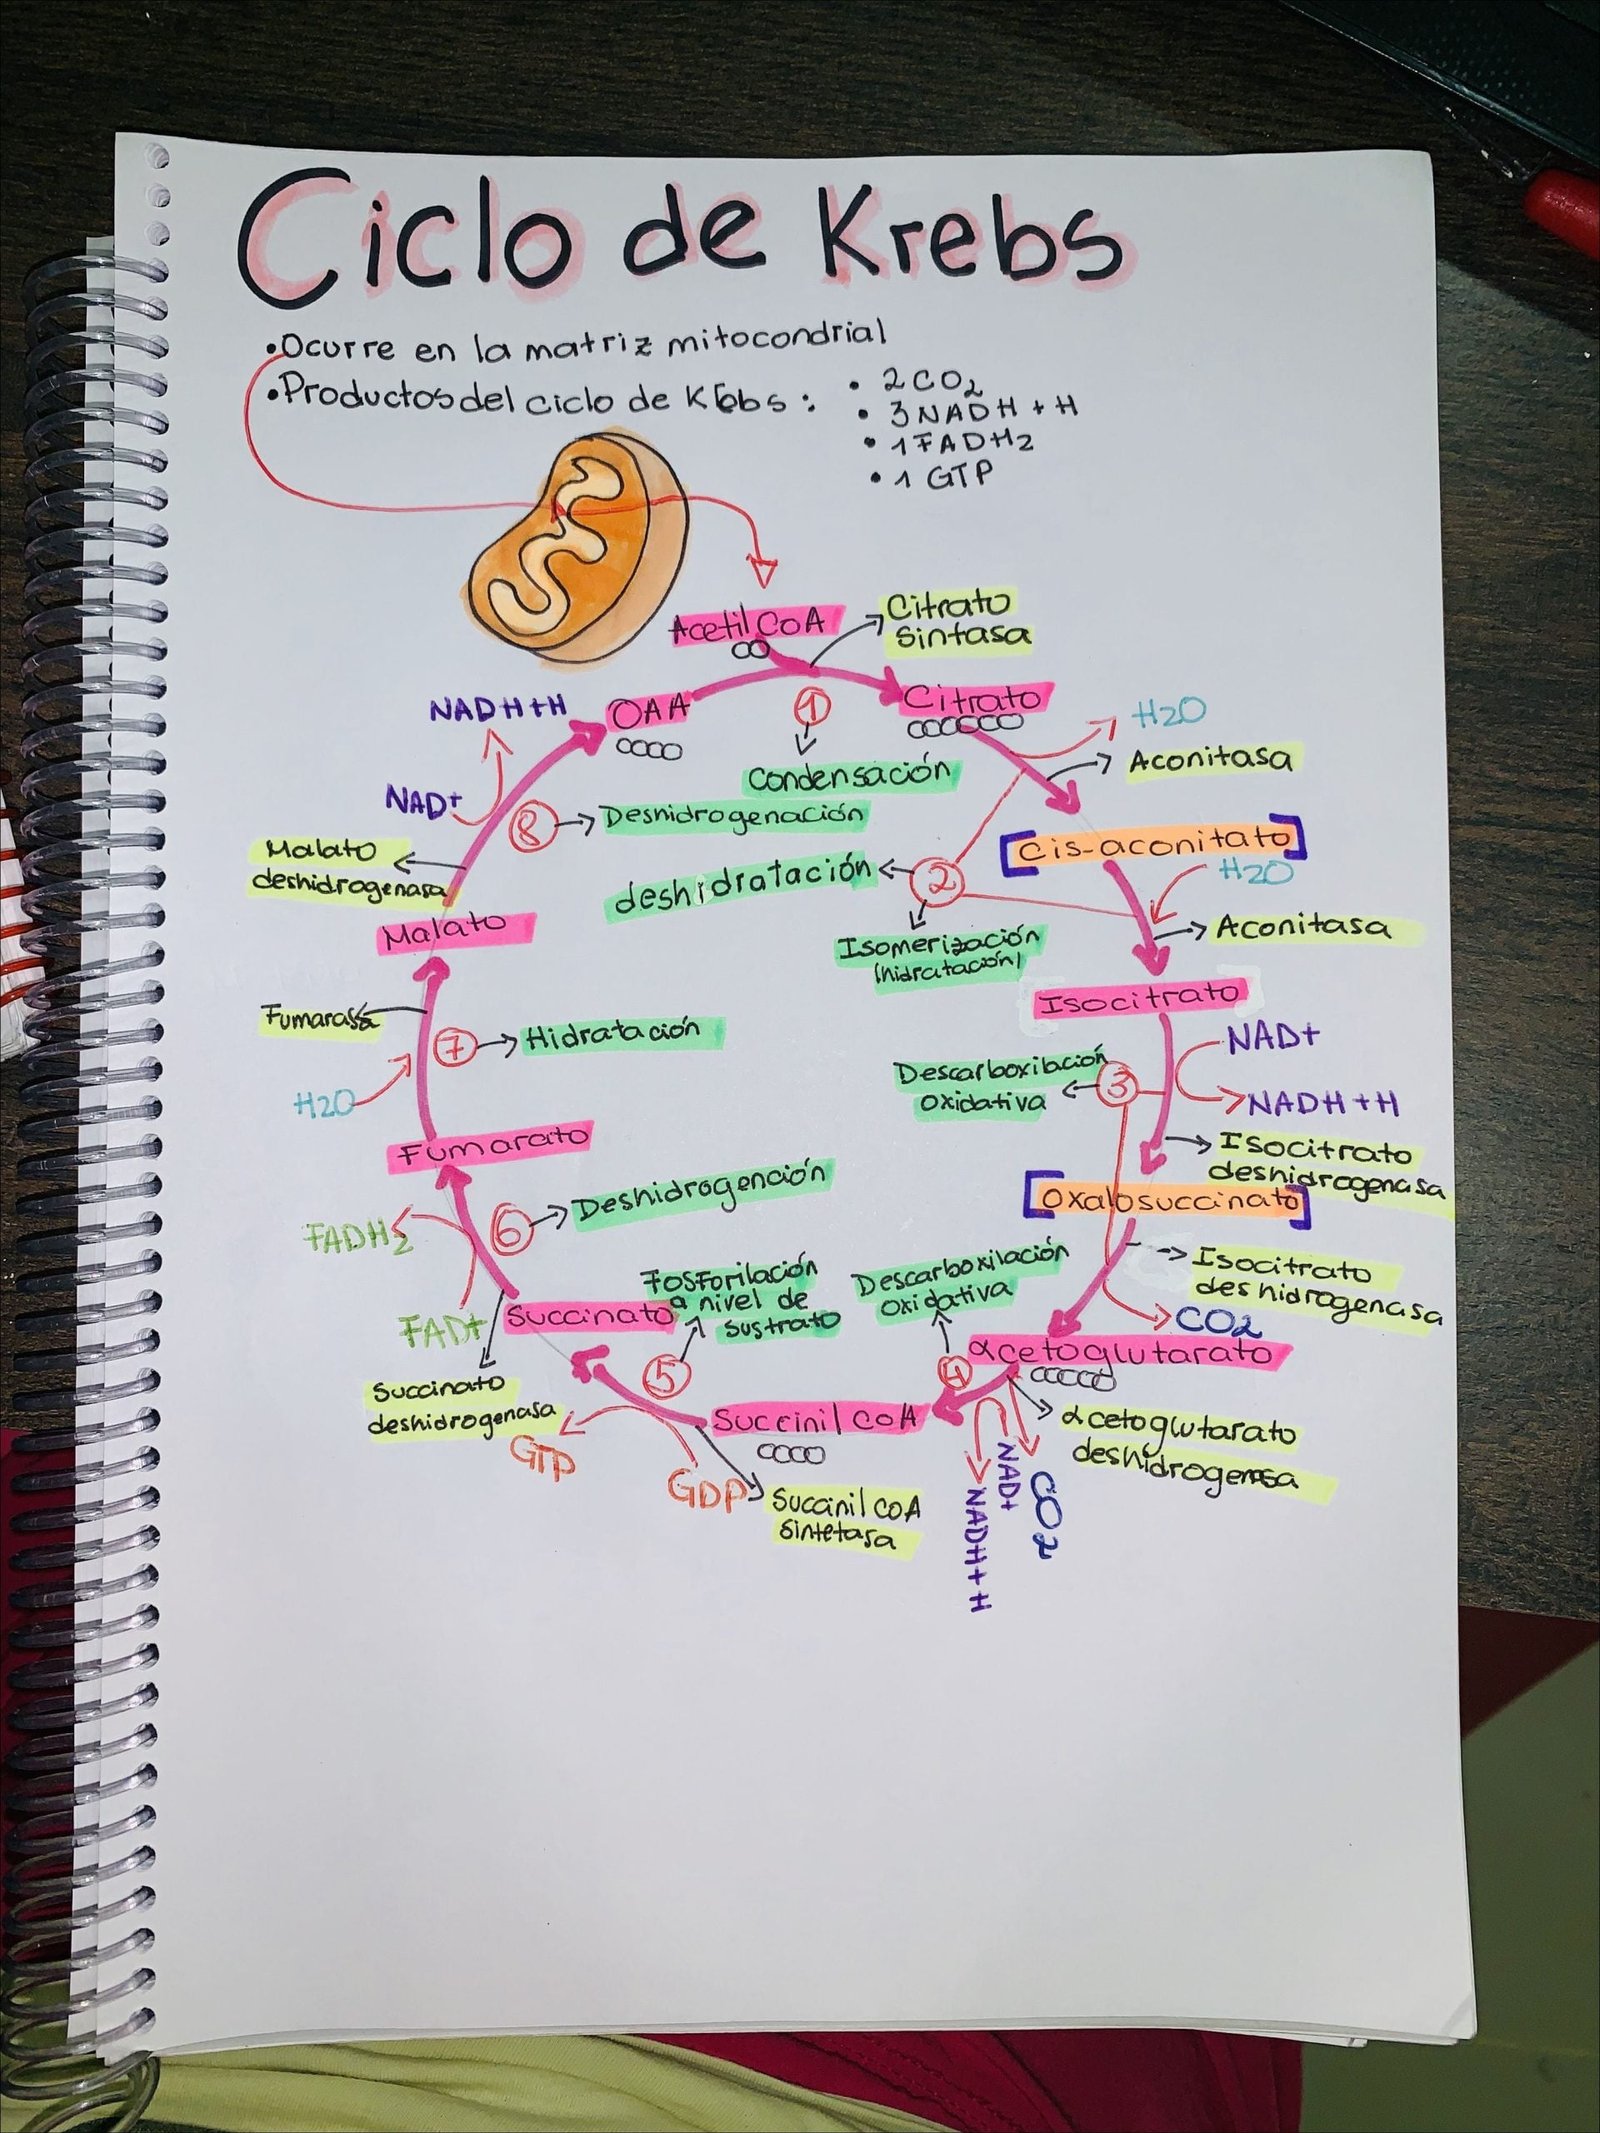 Ciclo de Krebs
•Ocurre en la matriz mitocondrial
•Productos del ciclo de Krebs:
• 2CO2
• 3NADH + H
• 1FADH2
• 1 GTP
Acetil CoA
Citrato
sintasa
OAA
1
Citrato
Condensación
H2O
Aconitasa
[cis-aconitato]
H2O
2
deshidratación
Isomerización
(hidratación)
Aconitasa
Isocitrato
NAD+
NADH+H
3
Descarboxilación
oxidativa
Isocitrato
deshidrogenasa
[oxalosuccinato]
Isocitrato
deshidrogenasa
CO2
αcetoglutarato
4
Descarboxilación
oxidativa
αcetoglutarato
deshidrogenasa
CO2
NAD+
NADH+H
Succinil CoA
5
Fosforilación
a nivel de
sustrato
GDP
GTP
Succinil CoA
sintetasa
Succinato
6
Deshidrogención
FAD+
FADH2
Succinato
deshidrogenasa
Fumarato
7
Hidratación
H2O
Fumarasa
Malato
8
Deshidrogenación
Malato
deshidrogenasa
NAD+
NADH+H